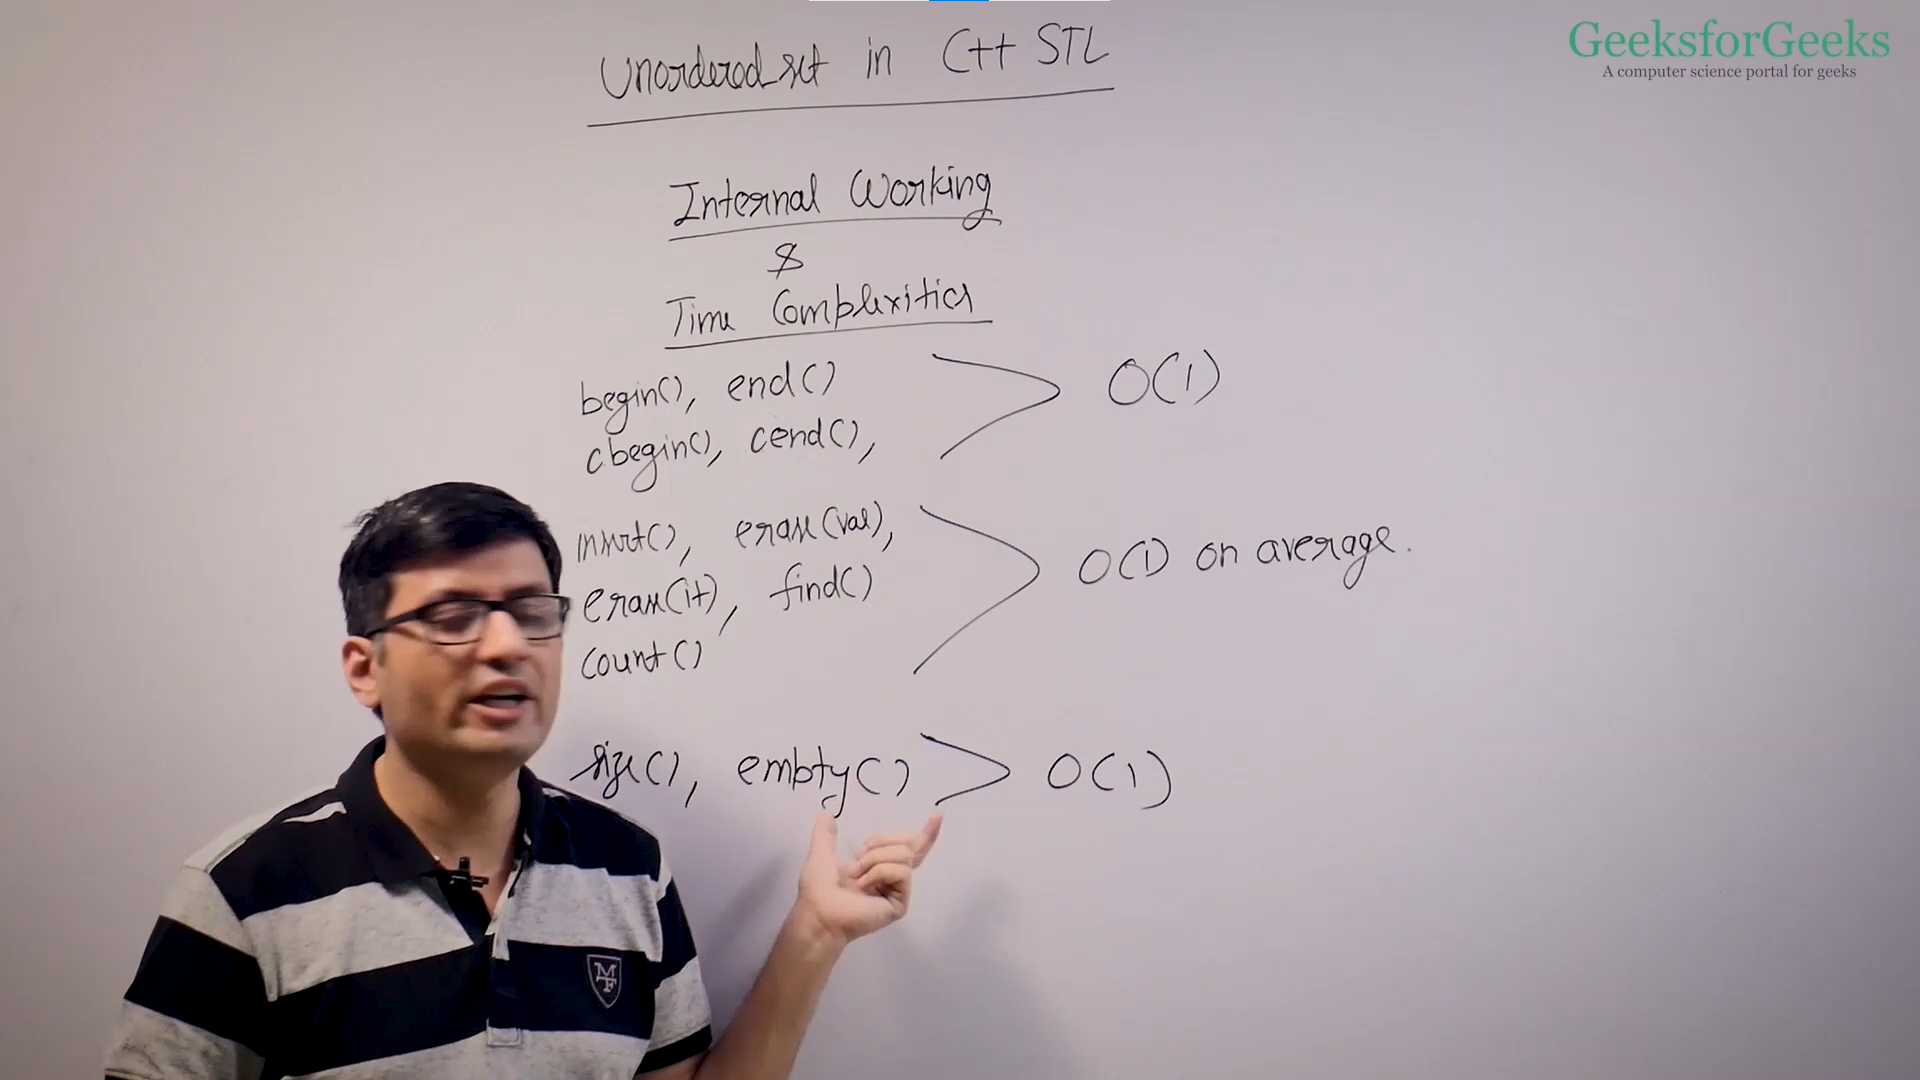 GeeksforGeeks
A computer science portal for geeks
Unordered_set in C++ STL
Internal Working
&
Time Complexities
begin(), end()
cbegin(), cend(),
O(1)
insert(), erase(val),
erase(it), find()
count()
O(1) on average.
size(), empty()
O(1)
MF